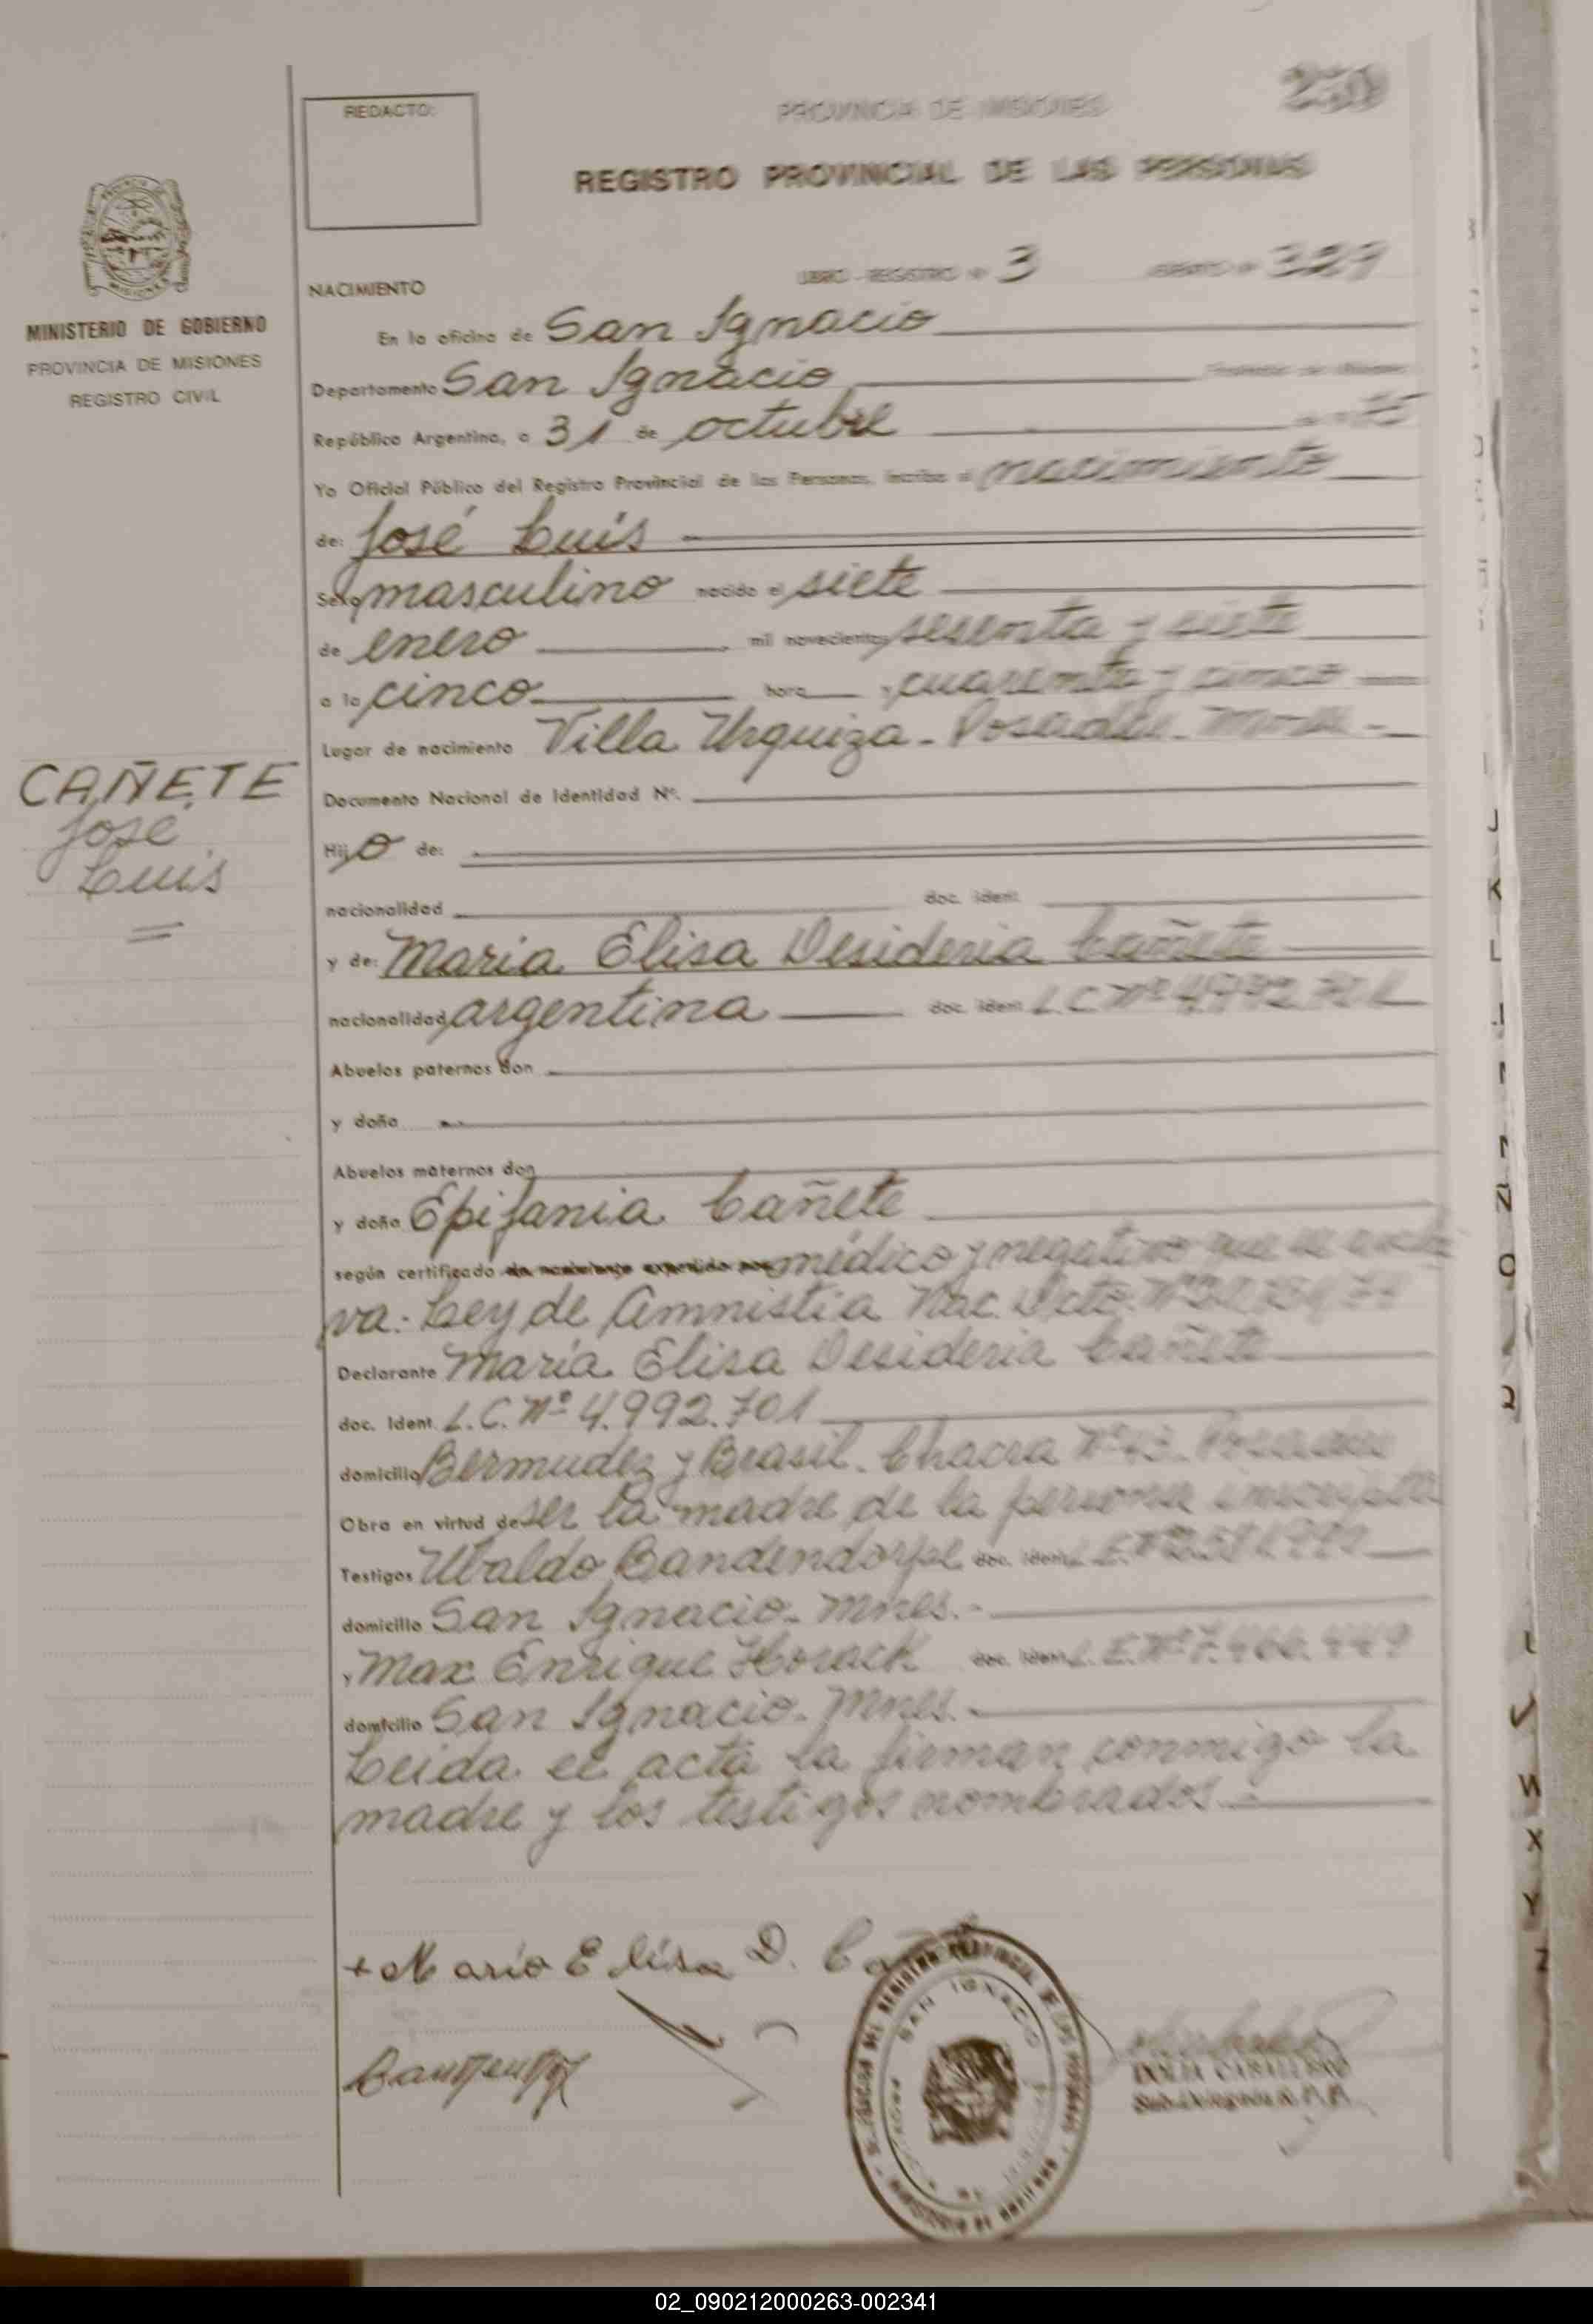 REDACTO:
PROVINCIA DE MISIONES
REGISTRO PROVINCIAL DE LAS PERSONAS
MINISTERIO DE GOBIERNO
PROVINCIA DE MISIONES
REGISTRO CIVIL
NACIMIENTO
LIBRO - REGISTRO Nº 3
En la oficina de San Ignacio
Departamento San Ignacio
República Argentina, a 31 de octubre 75
Yo Oficial Público del Registro Provincial de las Personas, inscribo el nacimiento
de: José Luis
Sexo masculino nacido el siete
de enero mil novecientos sesenta y siete
a la cinco hora y cuarenta y cinco
Lugar de nacimiento Villa Urquiza - Posadas -
Documento Nacional de Identidad Nº.
CAÑETE
José
Luis
Hijo de:
nacionalidad doc. Ident.
y de: María Elisa Desideria Cañete
nacionalidad argentina doc. Ident. L.C. Nº
Abuelos paternos don
y doña
Abuelos maternos don
y doña Epifania Cañete
según certificado de nacimiento expedido por médico y negativo que se archi
va: Ley de Amnistía Nac. Dcto. Nº
Declarante María Elisa Desideria Cañete
doc. Ident. L.C. Nº 4.992.701
domicilio Bermudez y Brasil. Chacra Nº Posadas
Obra en virtud de ser la madre de la persona inscripta
Testigos Ubaldo Bandendorpe doc. Ident. L.E. Nº
domicilio San Ignacio - Mnes. -
y Max Enrique Horack doc. Ident. L.E. Nº 7.
domicilio San Ignacio - Mnes. -
Leida el acta la firman conmigo la
madre y los testigos nombrados. -
+ Maria Elisa D.
SAN IGNACIO
CABALLERO
Sub-Delegada R.P.P.
J
K
L
N
Ñ
O
Q
V
W
X
Y
Z
02_090212000263-002341